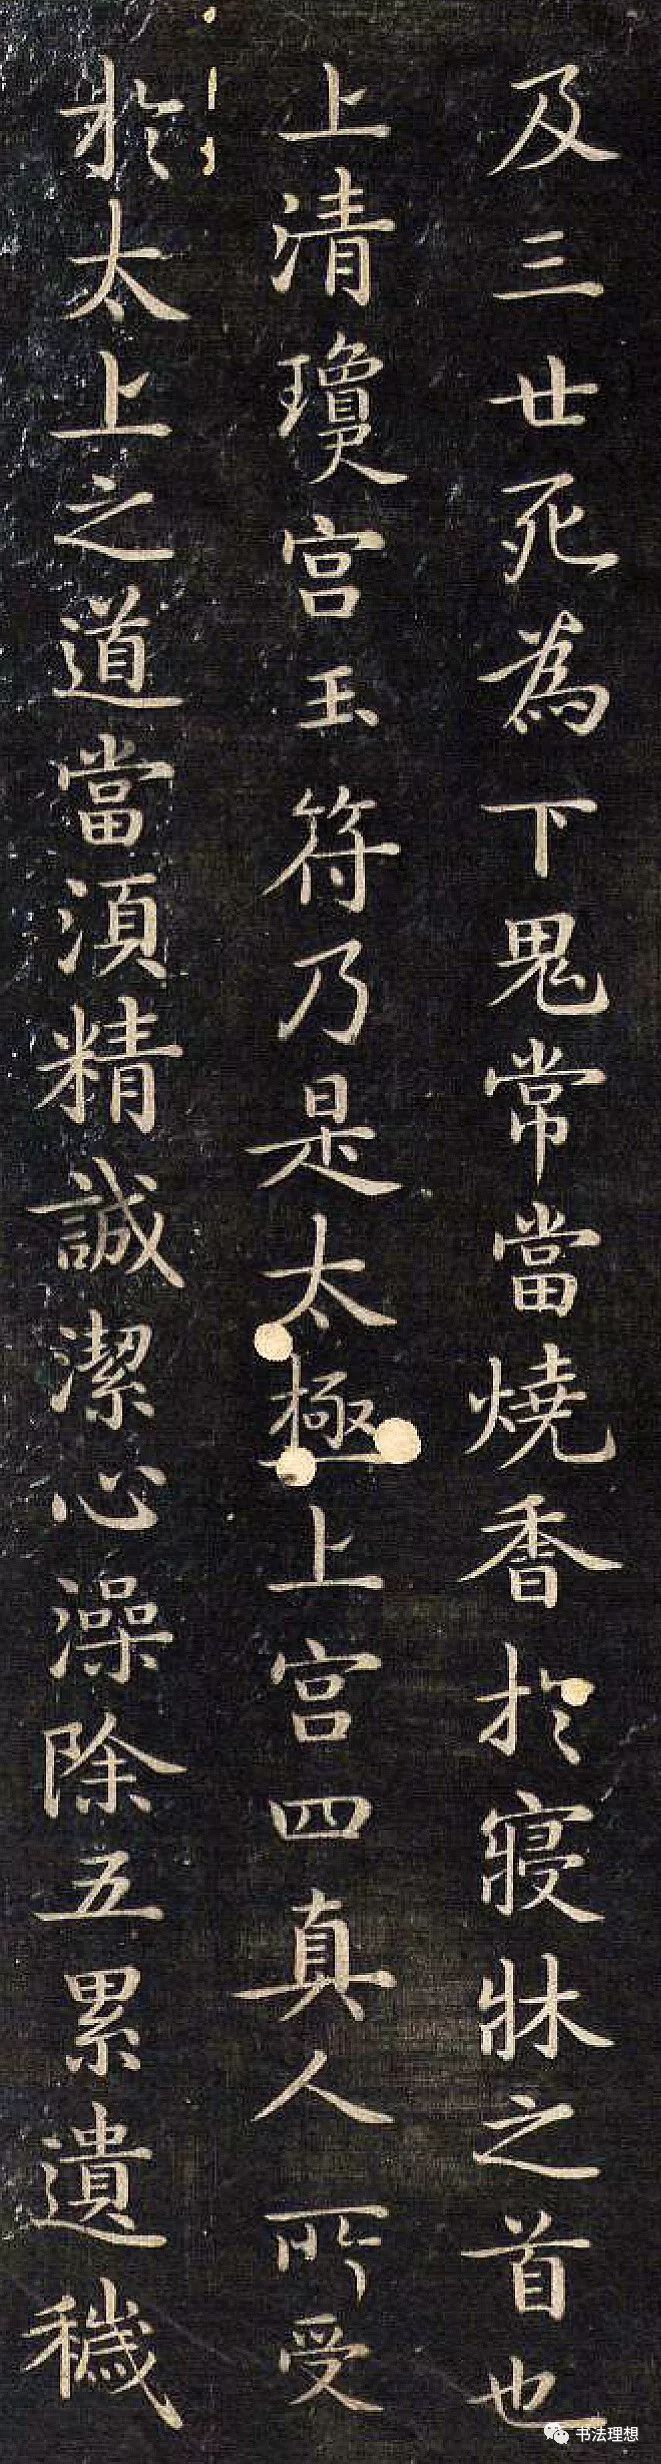 及三廿死為下鬼常當燒香扵寢牀之首也
上清瓊宮玉符乃是太極上宮四真人所受
扵太上之道當須精誠潔心澡除五累遺穢
书法理想